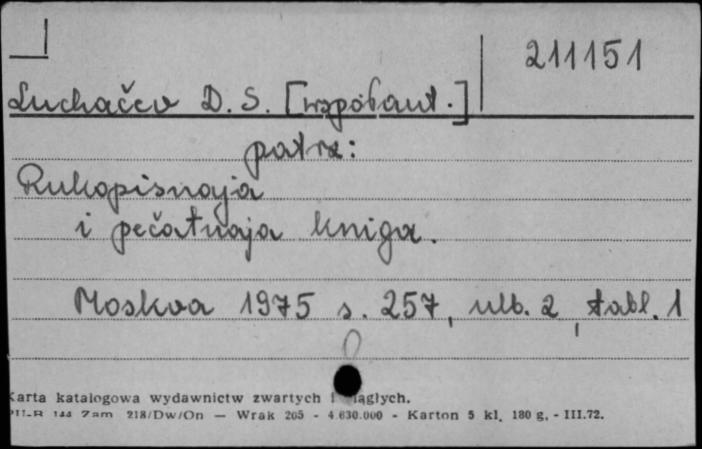 211151
Luchačev D. S. [współaut.]
patrz:
Rukopisnaja
i pečatnaja kniga.
Moskva 1975 s. 257, ulb. 2, tabl. 1
Karta katalogowa wydawnictw zwartych i ciągłych.
PU-R 144 Zam. 218/Dw/On — Wrak 265 - 4.630.000 - Karton 5 kl. 180 g. - III.72.